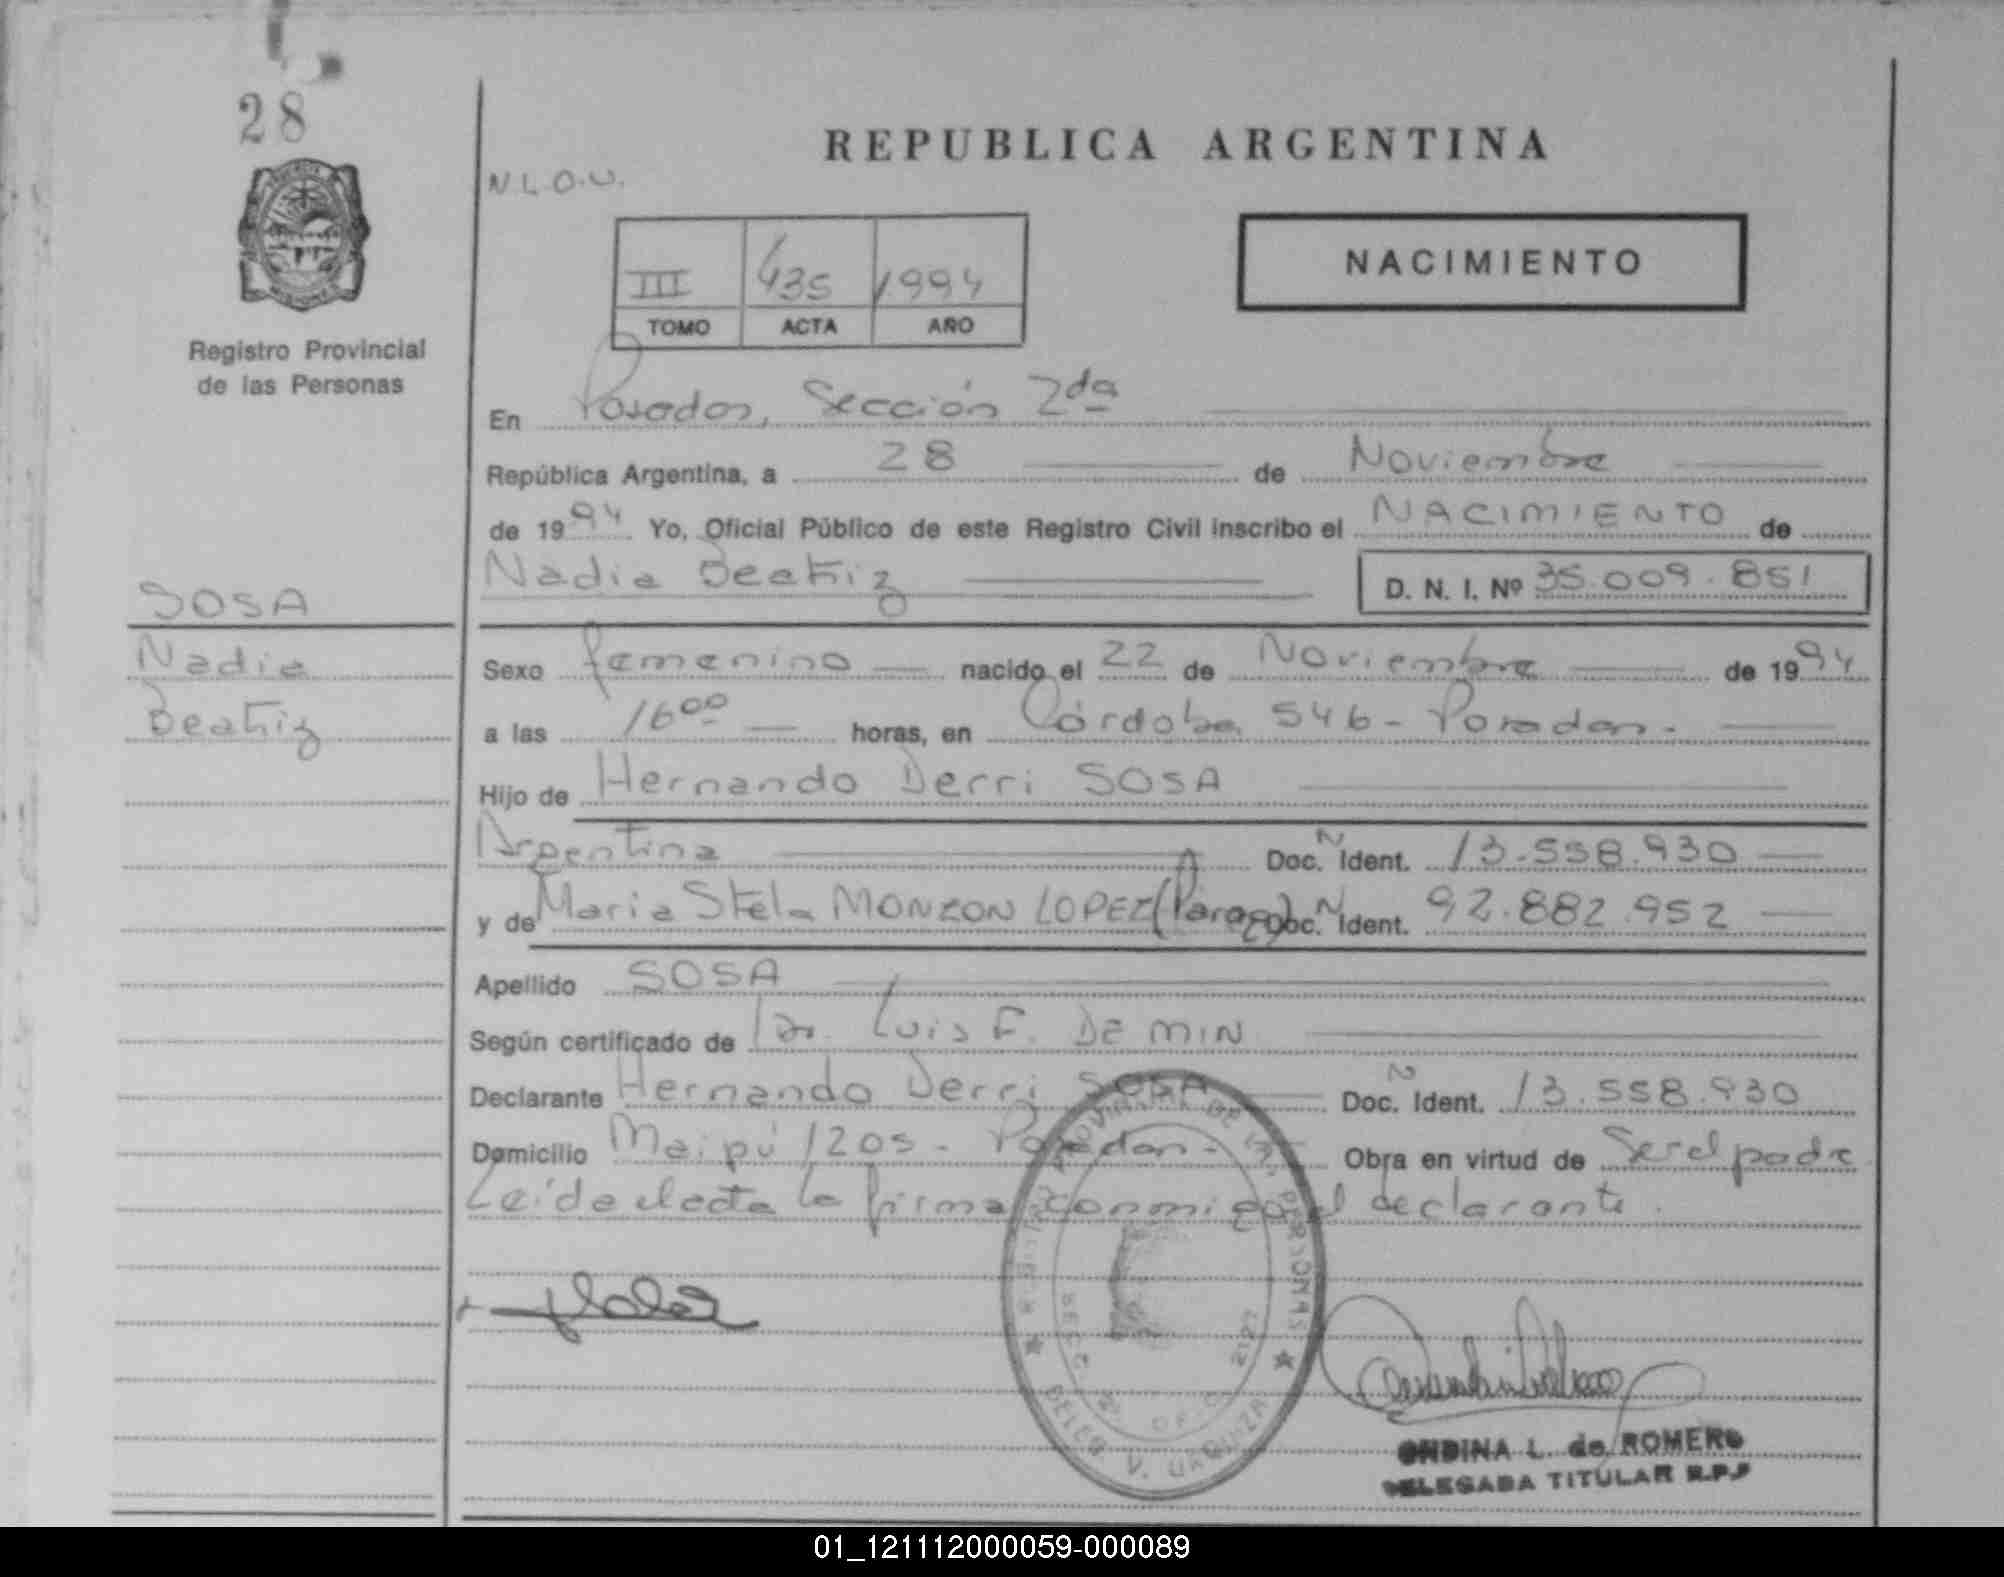 28
REPUBLICA ARGENTINA
N L.O.U.
NACIMIENTO
III 435 1994
TOMO ACTA AÑO
Registro Provincial
de las Personas
En Posadas, Sección 2da
República Argentina, a 28 de Noviembre
de 1994 Yo, Oficial Público de este Registro Civil inscribo el NACIMIENTO de
Nadia Beatriz D. N. I. Nº 35.009.851
SOSA
Nadia
Beatriz
Sexo femenino nacido el 22 de Noviembre de 1994
a las 16 00 horas, en Córdoba 546 - Posadas.-
Hijo de Hernando Derri SOSA
Argentina Doc. N Ident. 13.558.930
y de Maria Stela MONZON LOPEZ (Parag) Doc. N Ident. 92.882.952
Apellido SOSA
Según certificado de Dr. Luis F. DE MIN
Declarante Hernando Derri SOSA Doc. N Ident. 13.558.930
Domicilio Maipú 1205 - Posadas - Obra en virtud de Ser el padre
Leída el acta la firma conmigo el declarante.
REGISTRO PROVINCIAL DE LAS PERSONAS
DELEG. V. URQUIZA
ONDINA L. de ROMERO
DELEGADA TITULAR R.P.P
01_121112000059-000089